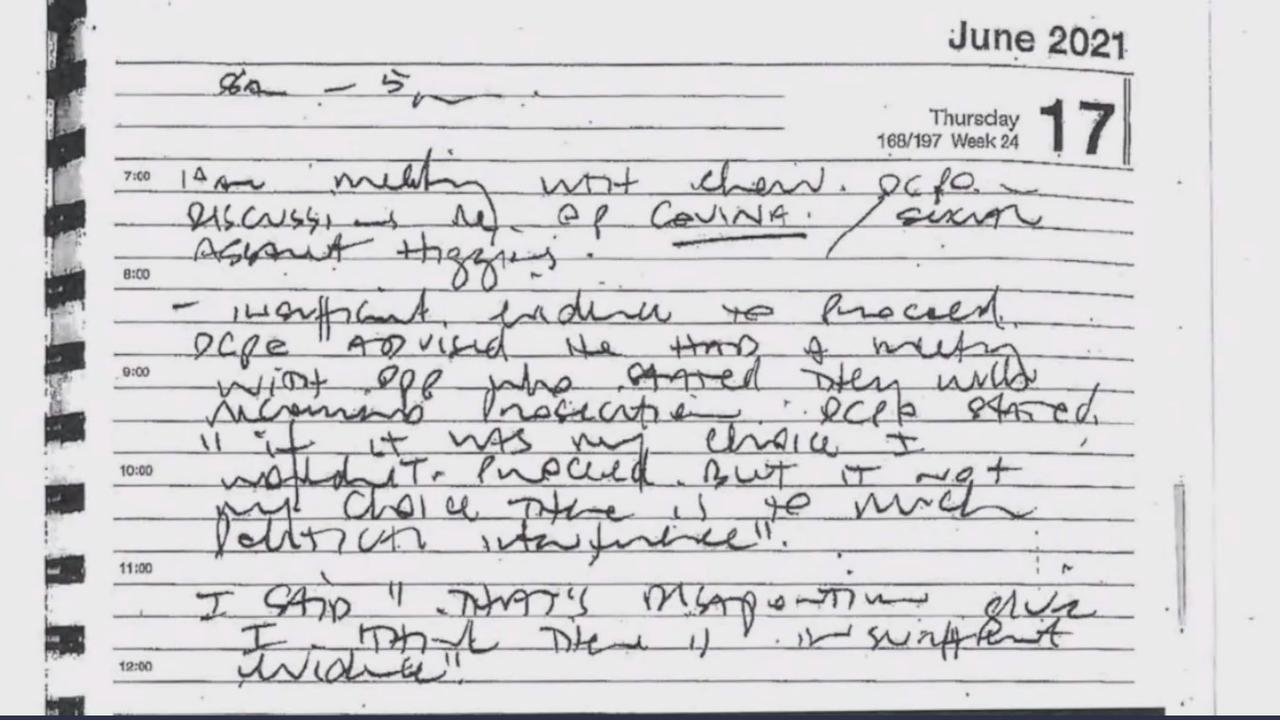 June 2021
8am - 5pm.
Thursday 17
168/197 Week 24
7:00 meeting with chew. DCPO -
DISCUSSIONS Re. OP COVINA. / sexual
ASSAULT Higgins.
8:00
- insufficient evidence to Proceed.
DCPO ADVISED He HAD A meeting
9:00 WITH DPP who STATED They will
recommend Prosecution. DCPO STATED,
" if it was my choice I
10:00 wouldn't Proceed. BUT it not
my choice There is to much
Political interference".
11:00
I SAID " THAT'S DISAPPOINTING given
I Think There is insufficient
12:00 evidence"